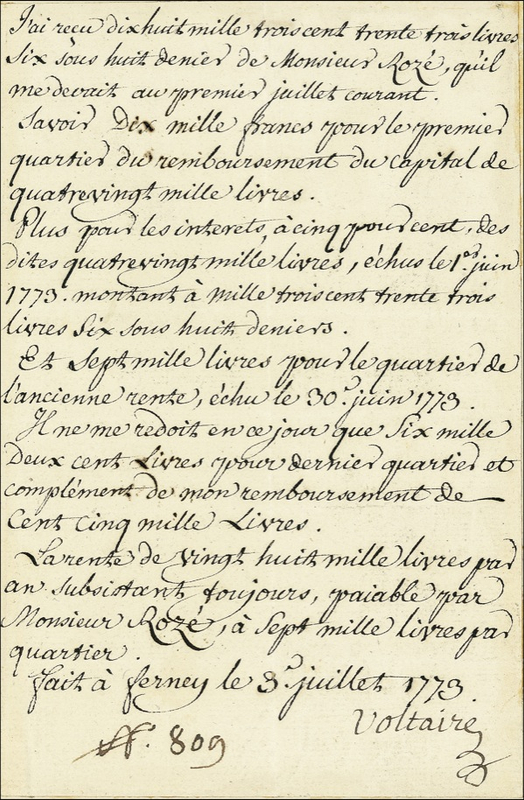 J'ai reçu dixhuit mille troiscent trente trois livres
Six sous huit denier de Monsieur Rozé, qu'il
me devait au premier juillet courant.
Savoir Dix mille francs pour le premier
quartier du remboursement du Capital de
quatrevingt mille livres.
Plus pour les interets, à cinq pour cent, des
dites quatrevingt mille livres, échus le 1er juin
1773. montant à mille troiscent trente trois
livres Six sous huit deniers.
Et Sept mille livres pour le quartier de
l'ancienne rente, échu le 30e juin 1773.
Il ne me redoit en ce jour que Six mille
Deux cent Livres pour dernier quartier et
complément de mon remboursement de
Cent Cinq mille Livres.
La rente de vingt huit mille livres par
an subsistant toujours, paiable par
Monsieur Rozé, à Sept mille livres par
quartier.
fait à ferney le 3e juillet 1773.
Voltaire
809